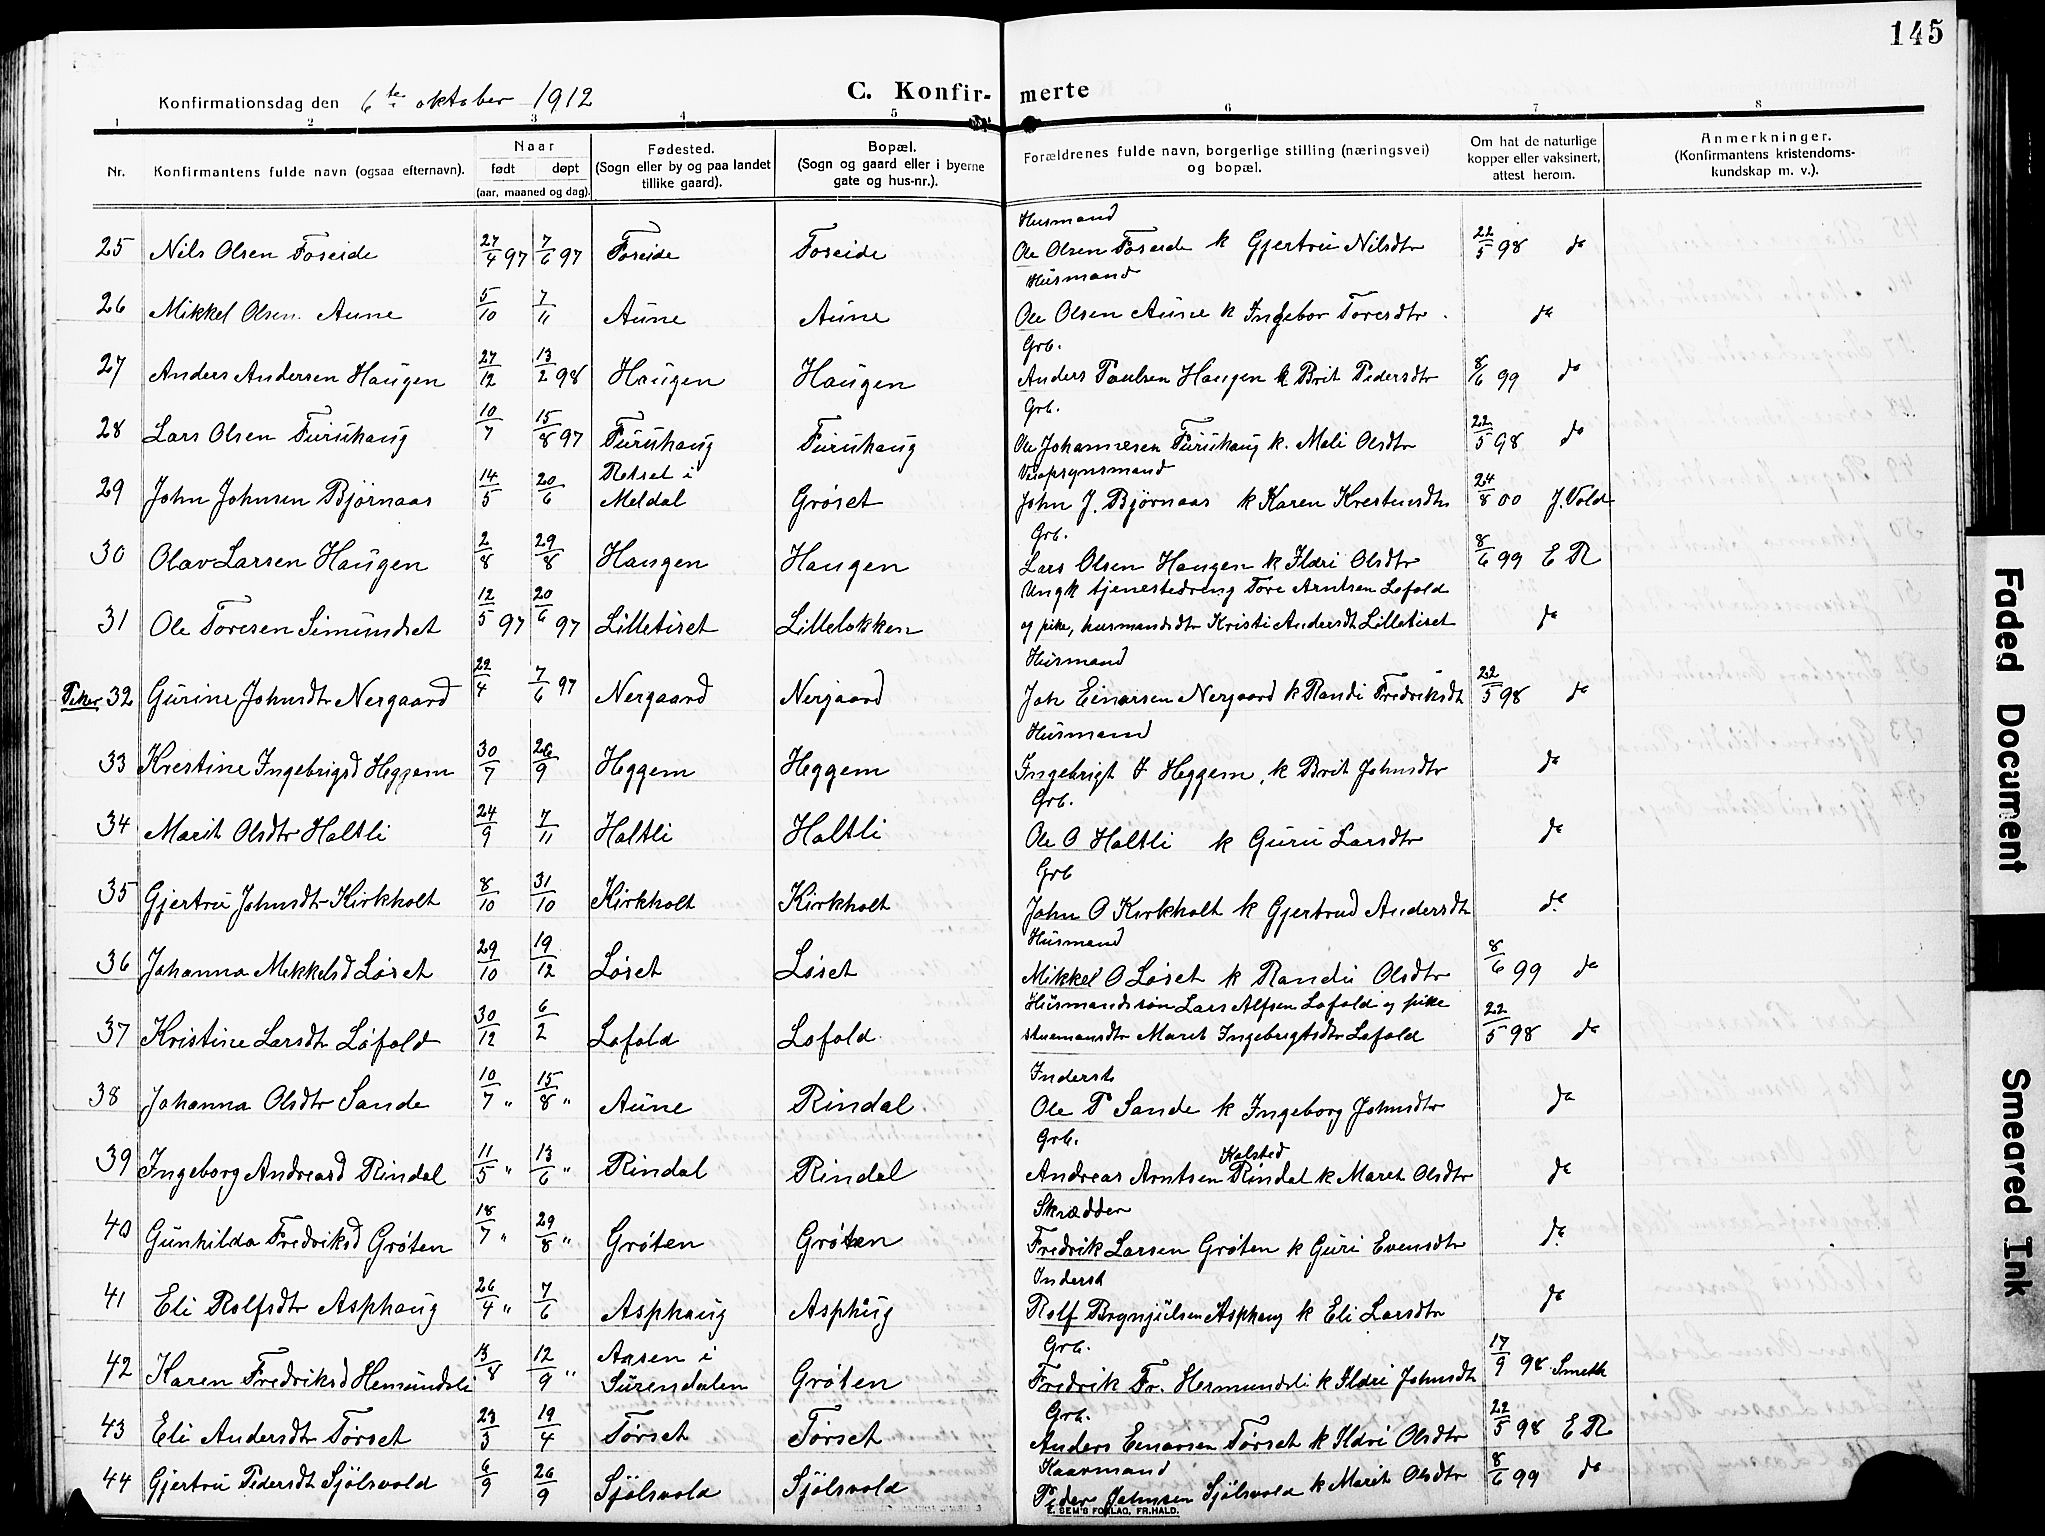 145
Konfirmationsdag den 6te oktober 1912
C. Konfir- merte
1 2 3 4 5 6 7 8
Nr. Konfirmantens fulde navn (ogsaa efternavn). Naar født døpt (aar, maaned og dag). Fødested. (Sogn eller by og paa landet tillike gaard). Bopæl. (Sogn og gaard eller i byerne gate og hus-nr.). Forældrenes fulde navn, borgerlige stilling (næringsvei) og bopæl. Om hat de naturlige kopper eller vaksinert, attest herom. Anmerkninger. (Konfirmantens kristendoms-kundskap m. v.).
Husmand
25 Nils Olsen Foseide 27/4 97 7/6 97 Foseide Foseide Ole Olsen Foseide k Gjertru Nilsdtr 22/5 98 do
Husmand
26 Mikkel Olsen Aune 5/10 7/11 Aune Aune Ole Olsen Aune k Ingebor Toresdtr do
Grb.
27 Anders Andersen Haugen 27/12 13/2 98 Haugen Haugen Anders Paulsen Haugen k Brit Pedersdtr 8/6 99 do
Grb.
28 Lars Olsen Furuhaug 10/7 15/8 97 Furuhaug Furuhaug Ole Johannesen Furuhaug k. Mali Olsdtr 22/5 98 do
Veiopsynsmand
29 John Johnsen Bjørnaas 14/5 20/6 Retset i Meldal Grøset John J. Bjørnaas k Karen Krestensdtr 24/8 00 J. Vold
Grb.
30 Olav Larsen Haugen 2/8 29/8 Haugen Haugen Lars Olsen Haugen k Ildri Olsdtr 8/6 99 E R
Ungk tjenestedreng Tore Arntsen Løfald
31 Ole Toresen Simundset 12/5 97 20/6 97 Lilletiset Lilleløkken og pike, husmandsdtr Kristi Andersdt Lilletiset do
Husmand
Piker 32 Gurine Johnsdtr Nergaard 22/4 7/6 97 Nergaard Nergaard Joh Einarsen Nergaard k Randi Fredriksdt 22/5 98 do
Husmand
33 Krestine Ingebrigsd Heggem 30/7 26/9 Heggem Heggem Ingebrigt J Heggem k Brit Johnsdtr do
Grb.
34 Marit Olsdtr Haltli 24/9 7/11 Haltli Haltli Ole O Haltli k Guru Larsdtr do
Grb
35 Gjertru Johnsdtr Kirkholt 8/10 31/10 Kirkholt Kirkholt John O Kirkholt k Gjertrud Andersdt do
Husmand
36 Johanna Mikkelsd Løset 29/10 19/12 Løset Løset Mikkel O Løset k Randi Olsdtr 8/6 99 do
Husmandssøn Lars Alfsen Løfald og pike
37 Kristine Larsdtr Løfald 30/12 6/2 Løfald Løfald stuemansdtr Maret Ingebrigtsdtr Løfald 22/5 98 do
Inderst
38 Johanna Olsdtr Sande 10/7 " 15/8 " Aune Rindal Ole P Sande k Ingeborg Johnsdtr do
Grb. Halsted
39 Ingeborg Andreasd Rindal 11/5 " 13/6 " Rindal Rindal Andreas Arntsen Rindal k Maret Olsdtr do
Skrædder
40 Gunhilda Fredriksd Grøten 18/7 " 29/8 " Grøten Grøten Fredrik Larsen Grøten k Guri Evensdtr do
Inderst
41 Eli Rolfsdtr Asphaug 26/4 " 7/6 Asphaug Asphaug Rolf Brynjulsen Asphaug k Eli Larsdtr do
Grb.
42 Karen Fredriksd Hemundsli 13/8 12/9 " Aasen i Surendalen Grøten Fredrik Fr. Hermundsli k Ildri Johnsdt 17/9 98 Smeth
Grb.
43 Eli Andersdtr Tørset 23/3 19/4 Tørset Tørset Anders Einarsen Tørset k Ildri Olsdtr 22/5 98 E R
Kaarmand
44 Gjertru Pedersdt Sjølsvold 6/9 26/9 Sjølsvold Sjølsvold Peder Johnsen Sjølsvold k Marit Olsdtr 8/6 99 do
E. SEM'S FORLAG, FR.HALD.
Faded Document
Smeared Ink